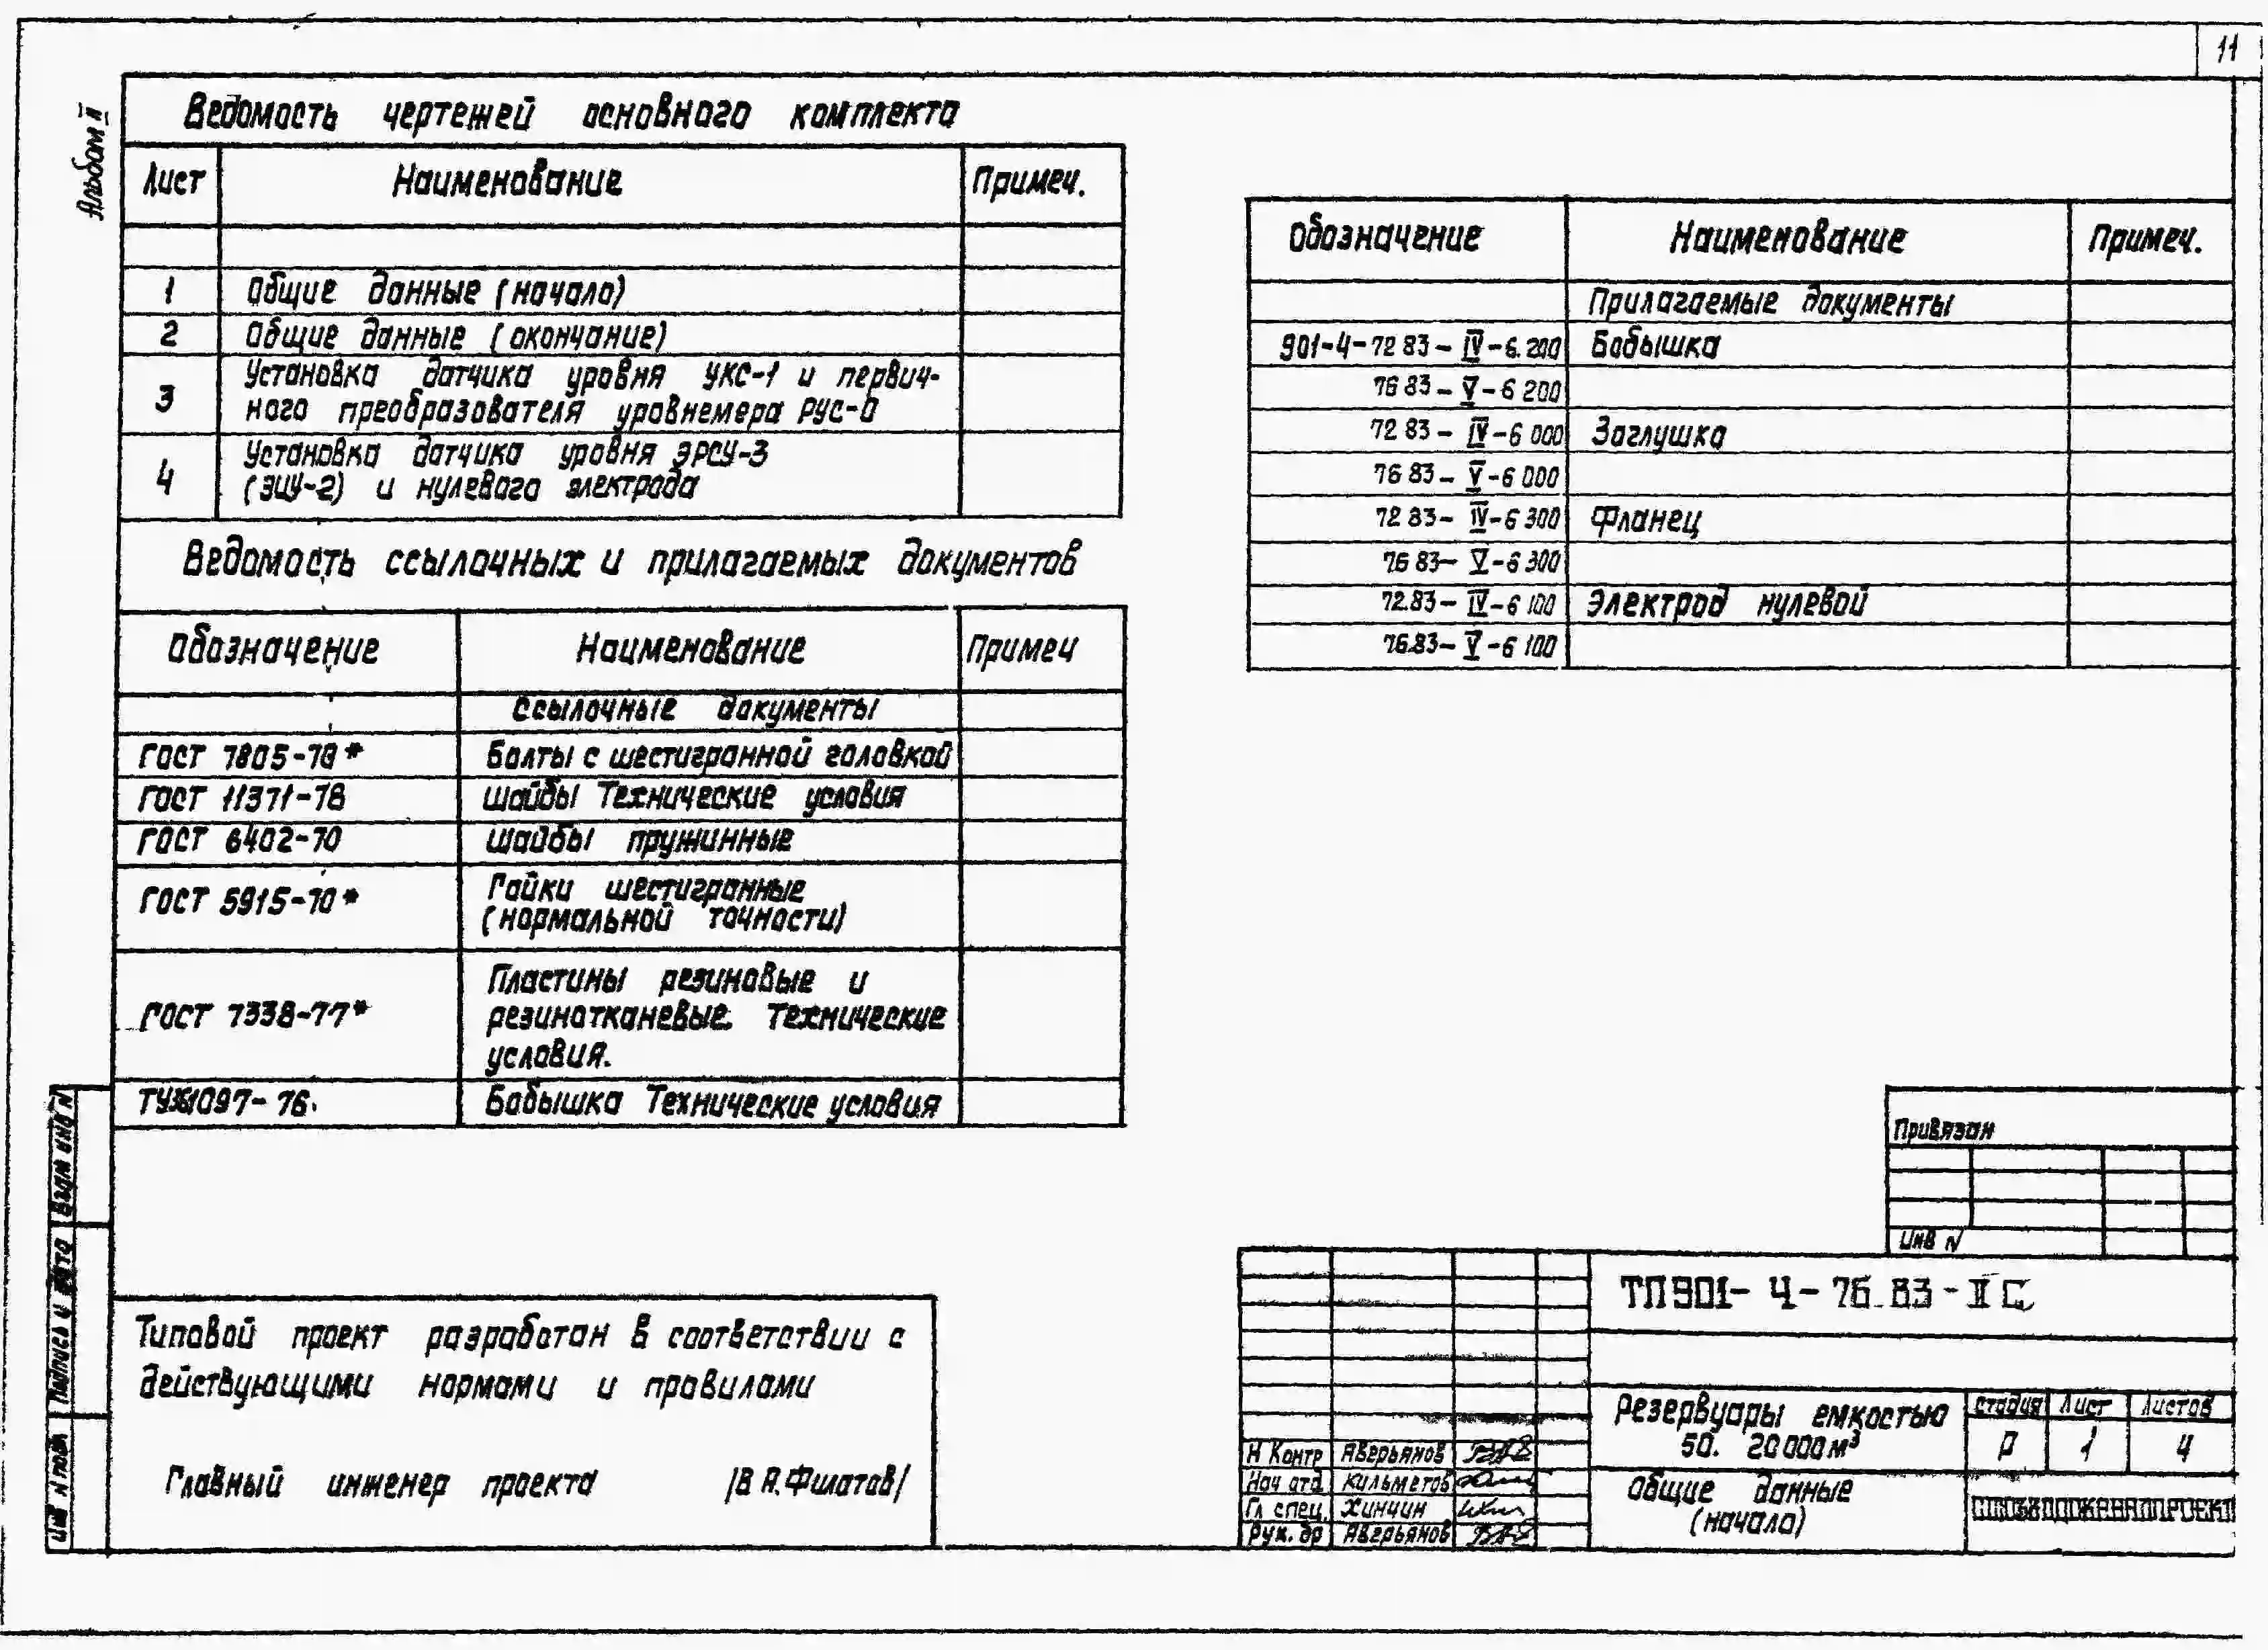 11
Альбом II
Ведомость чертежей основного комплекта
Лист Наименование Примеч.
1 Общие данные (начало)
2 Общие данные (окончание)
3 Установка датчика уровня УКС-1 и первич-
ного преобразователя уровнемера РУС-0
4 Установка датчика уровня ЭРСУ-3
(ЭИУ-2) и нулевого электрода
Ведомость ссылочных и прилагаемых документов
Обозначение Наименование Примеч
Ссылочные документы
ГОСТ 7805-70* Болты с шестигранной головкой
ГОСТ 11371-78 Шайбы Технические условия
ГОСТ 6402-70 Шайбы пружинные
ГОСТ 5915-70* Гайки шестигранные
(нормальной точности)
ГОСТ 7338-77* Пластины резиновые и
резинотканевые. Технические
условия.
1097-76. Бобышка Технические условия
Обозначение Наименование Примеч.
Прилагаемые документы
901-4-72 83-IV-6.200 Бобышка
76 83-V-6 200
72 83-IV-6 000 Заглушка
76 83-V-6 000
72 83-IV-6 300 Фланец
76 83-V-6 300
72.83-IV-6 100 Электрод нулевой
76.83-V-6 100
Типовой проект разработан в соответствии с
действующими нормами и правилами
Главный инженер проекта /В А.Филатов/
Взам инв N
Подпись и дата
Инв N подл
Привязан
Инв N
ТП 901-4-76.83-II С
Резервуары емкостью
50. 20000м³
Стадия Лист Листов
Р 1 4
Общие данные
(начало)
Н Контр Аверьянов
Нач отд Кильметов
Гл спец. Хинчин
Рук. бр Аверьянов